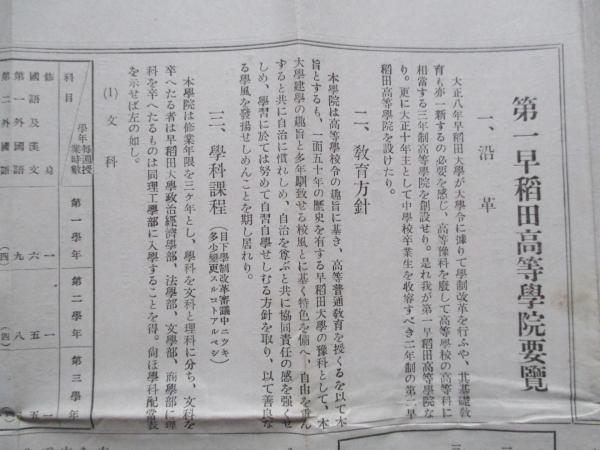 第一早稲田高等學院要覽
一、沿革
大正八年早稲田大學が大學令に據りて學制改革を行ふや、其基礎敎
育も亦一新するの必要を感じ、高等豫科を廢して高等學校の高等科に
相當する三年制高等學院を創設せり。是れ我が第一早稲田高等學院な
り。更に大正十年主として中學校卒業生を收容すべき二年制の第二早
稲田高等學院を設けたり。
二、敎育方針
本學院は高等學校令の趣旨に基き、高等普通敎育を授くるを以て本
旨とするも、一面五十年の歷史を有する早稲田大學の豫科として、本
大學建學の趣旨と多年馴致せる校風とに基く特色を備へ、自由を重ん
ずると共に自治に慣れしめ、自治を尊ぶと共に協同責任の感を强くせ
しめ、學習に於ては努めて自習自學せしむる方針を取り、以て善良な
る學風を發揚せしめんことを期し居れり。
三、學科課程（目下學制改革審議中ニツキ、多少變更スルコトアルベシ）
本學院は修業年限を三ヶ年とし、學科を文科と理科に分ち、文科を
卒へたる者は早稲田大學政治經濟學部、法學部、文學部、商學部に理
科を卒へたるものは同理工學部に入學することを得。尙ほ學科配當表
を示せば左の如し。
(1) 文科
科目 學年 每週授業時數 第一學年 第二學年 第三學年
修身 一 一 一
國語及漢文 六 五 五
第一外國語 九 八
第二外國語 (四) (四)